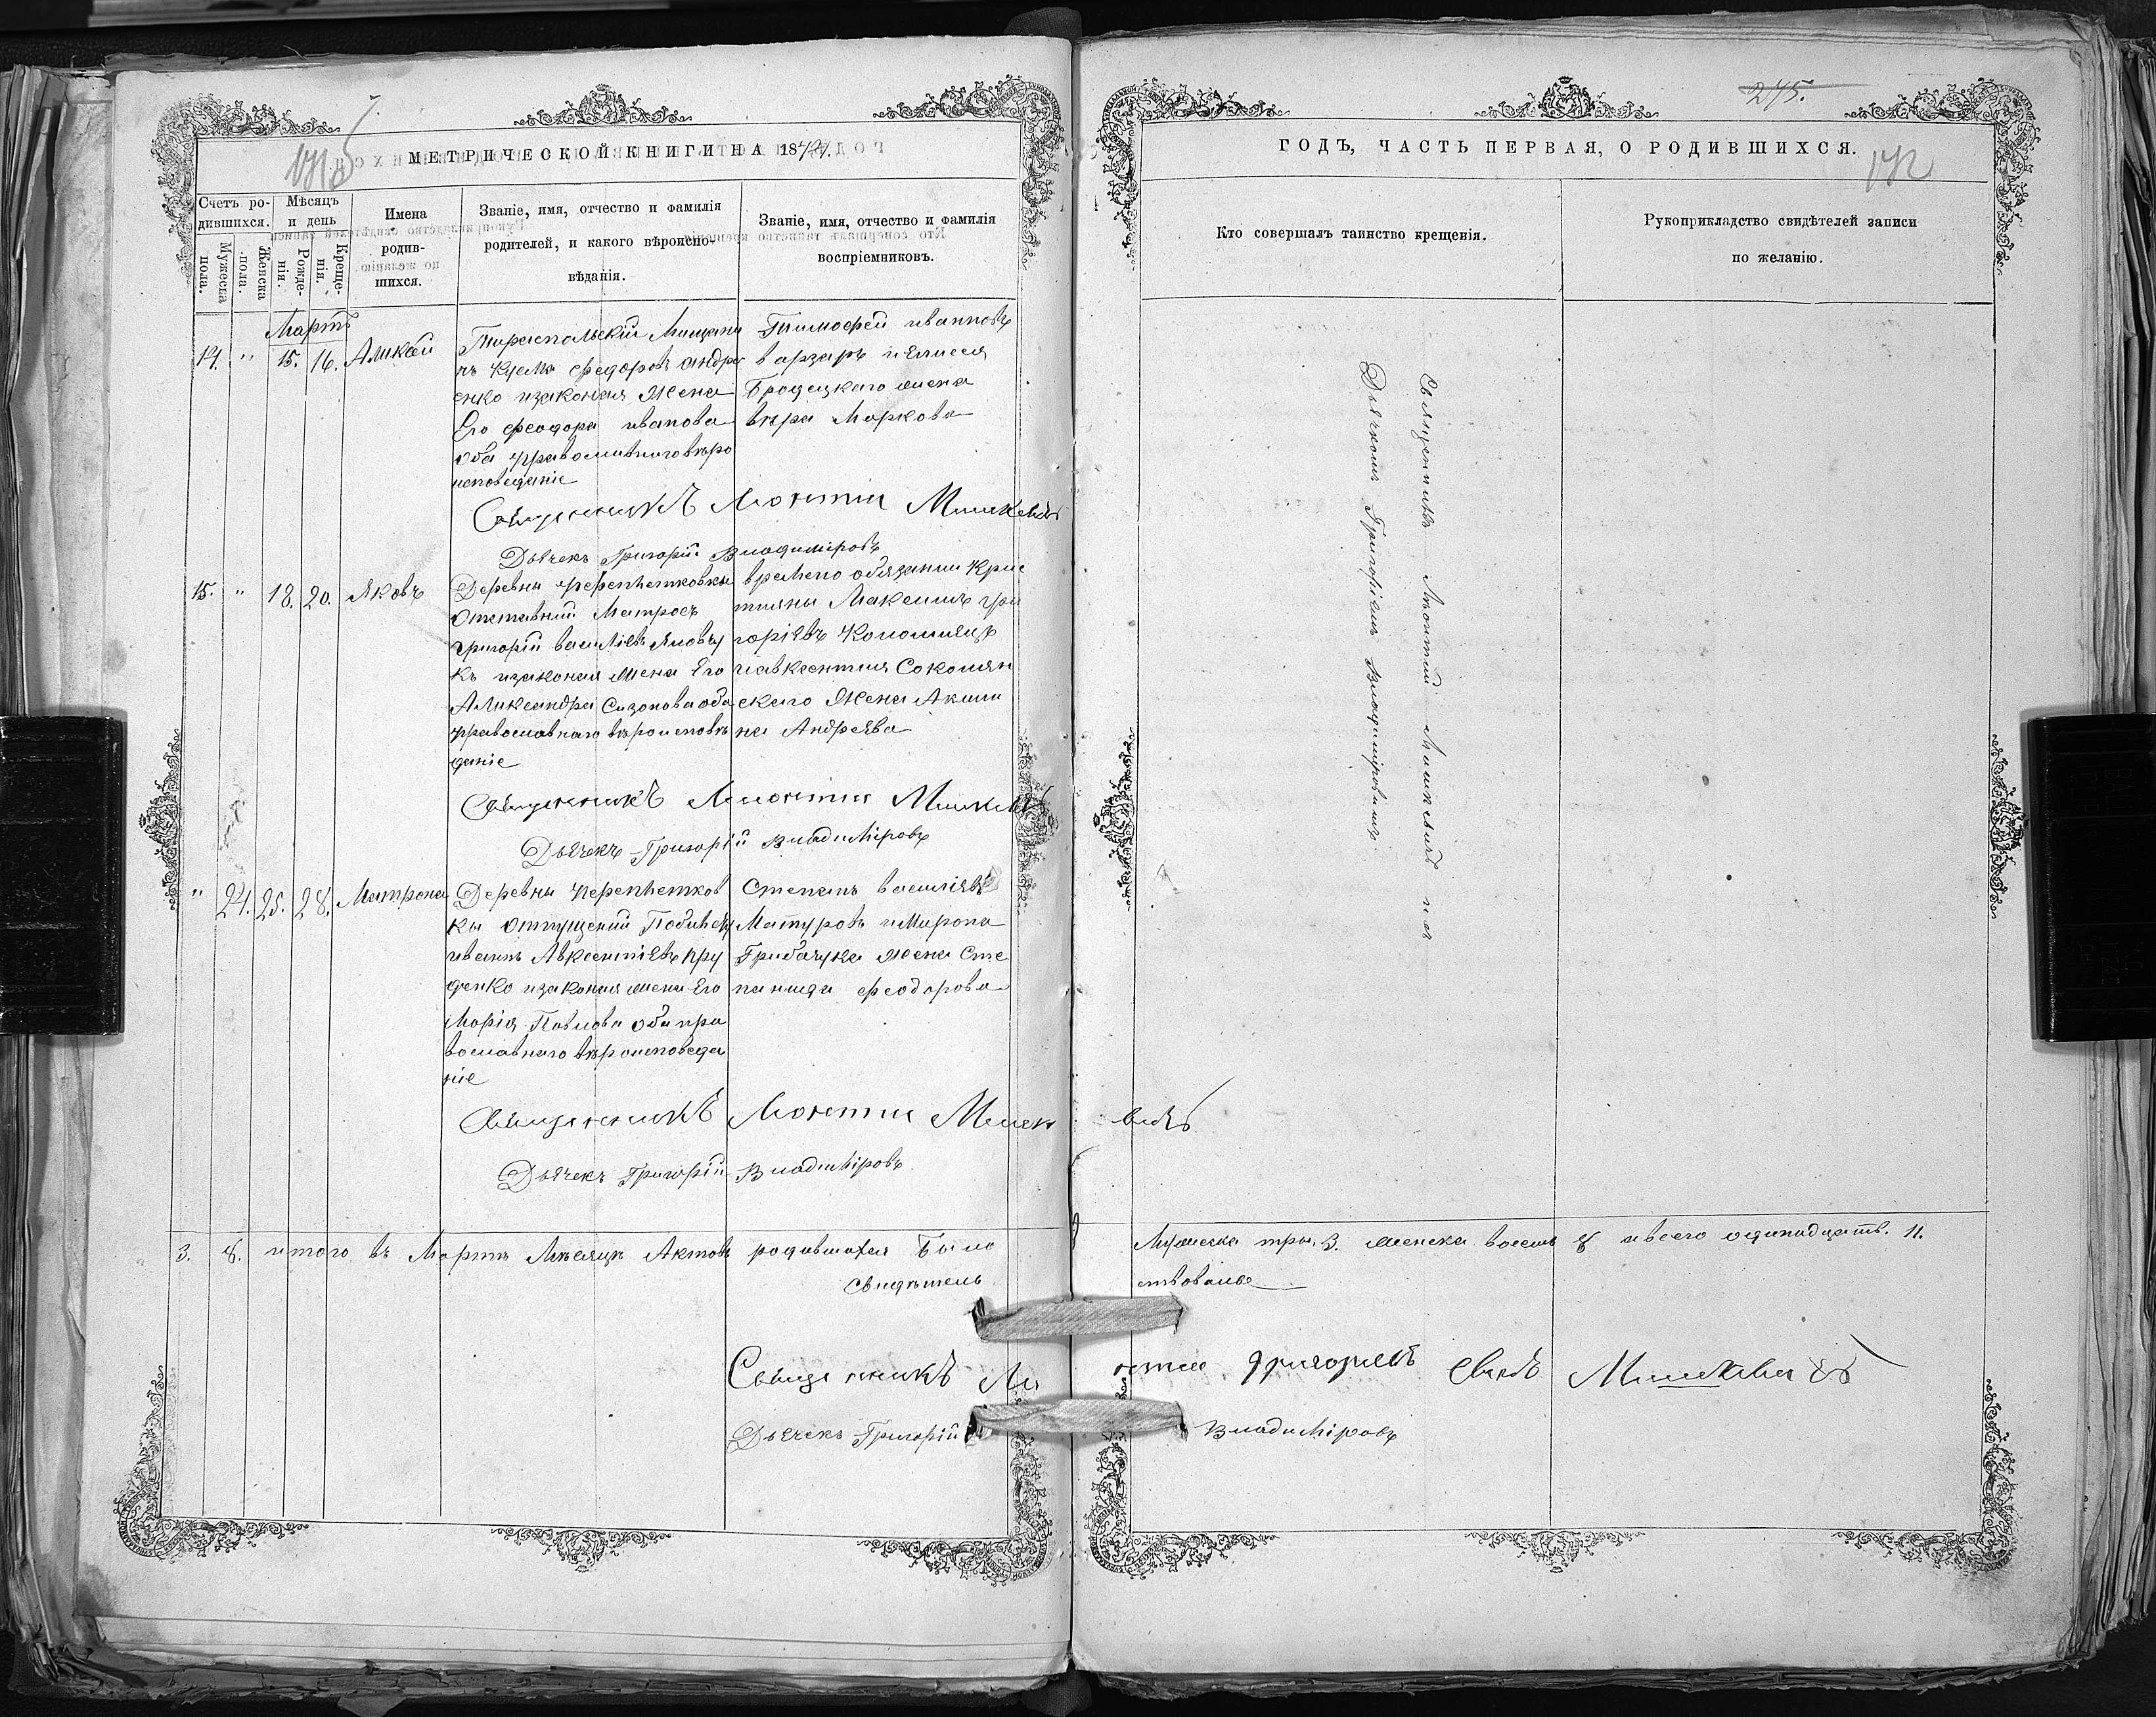 245.
172
МЕТРИЧЕСКОЙ КНИГИ НА 1871.
ГОДЪ, ЧАСТЬ ПЕРВАЯ, О РОДИВШИХСЯ.
Счетъ ро-
дившихся.
Мужеска
пола.
Женска
пола.
Мѣсяцъ
и день
Рожде-
нія.
Креще-
нія.
Имена
родив-
шихся.
Званіе, имя, отчество и фамилія
родителей, и какого вѣроиспо-
вѣданія.
Званіе, имя, отчество и фамилія
воспріемниковъ.
Кто совершалъ таинство крещенія.
Рукоприкладство свидѣтелей записи
по желанію.
Мартъ
14. " 15. 16. Алиќсѣй
Тираспольскій Мищани
нъ Кузма федоровъ Андре
енко изаконая Жена
Его феодора иванова
оба православнаго вѣро
исповеданіе
Тимофей ивановъ
варзаръ и
Бродецкаго жена
вѣра Маркова
Священникъ Леонтии
Дьячекъ Григорій Владиміровъ
15. " 18. 20. Яковъ
Деревни Перепетковки
Отставний Матросъ
Григорій василіевъ
къ изаконая жена Его
Алиќсандра Сизонова оба
православнаго вѣроисповѣ
даніе
времено обязании Крис
тияны Максимъ гри
горіевъ Коломиецъ
иавксентия Соколян
скаго Жена Акили
на Андреева
Священникъ Леонтии
Дьячекъ Григорій Владиміровъ
" 24. 25. 28. Матрона
Деревни Перепетков
ки отпущений
иванъ Авксентіевъ Пру
денко изаконая жена Его
Марія Павлова оба пра
вославнаго вѣроисповеда
ніе
Степанъ василіевъ
Матуровъ иМирона
Грибачука жена Сте
панида феодорова
Священникъ Леонтии
Дьячекъ Григорій Владиміровъ
Священникъ Леонтий
Дьячкомъ Григоріемъ Владиміровымъ
3. 8. итого въ Мартѣ Мѣсяцѣ Актовъ родившихся Было
Мужеска три. 3. женска восемь 8 ивсего одинадцать. 11.
свидѣтель
ствовалъ
Священникъ
Дьячекъ Григорій Владиміровъ